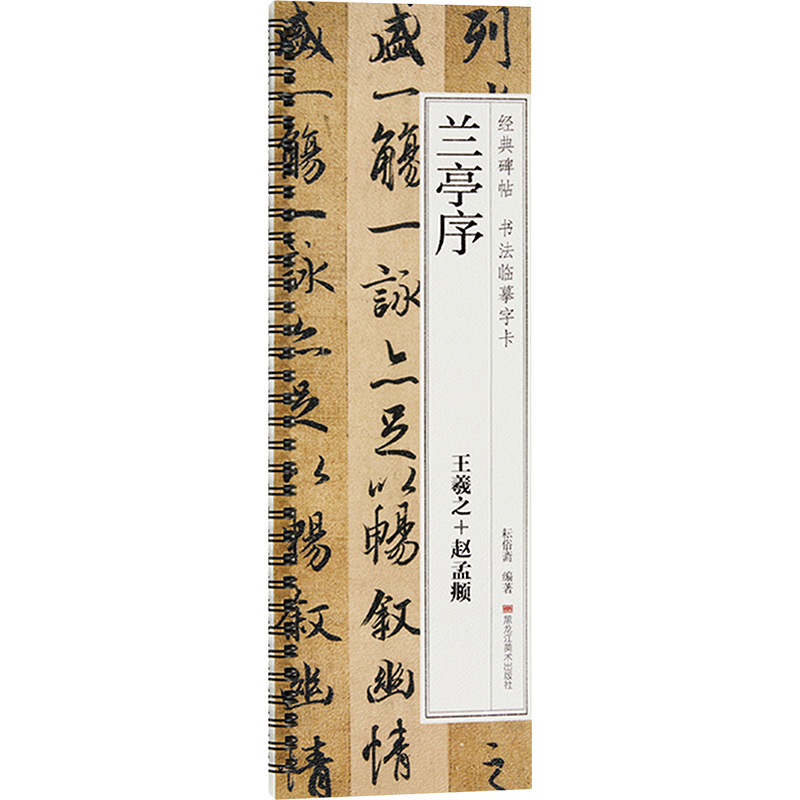 列
之
经典碑帖 书法临摹字卡
耘俗斋 编著
黑龙江美术出版社
兰亭序
王羲之+赵孟𫖯
盛一觴一詠亦足以暢叙幽情
盛一觴一詠亦足以暢叙幽情